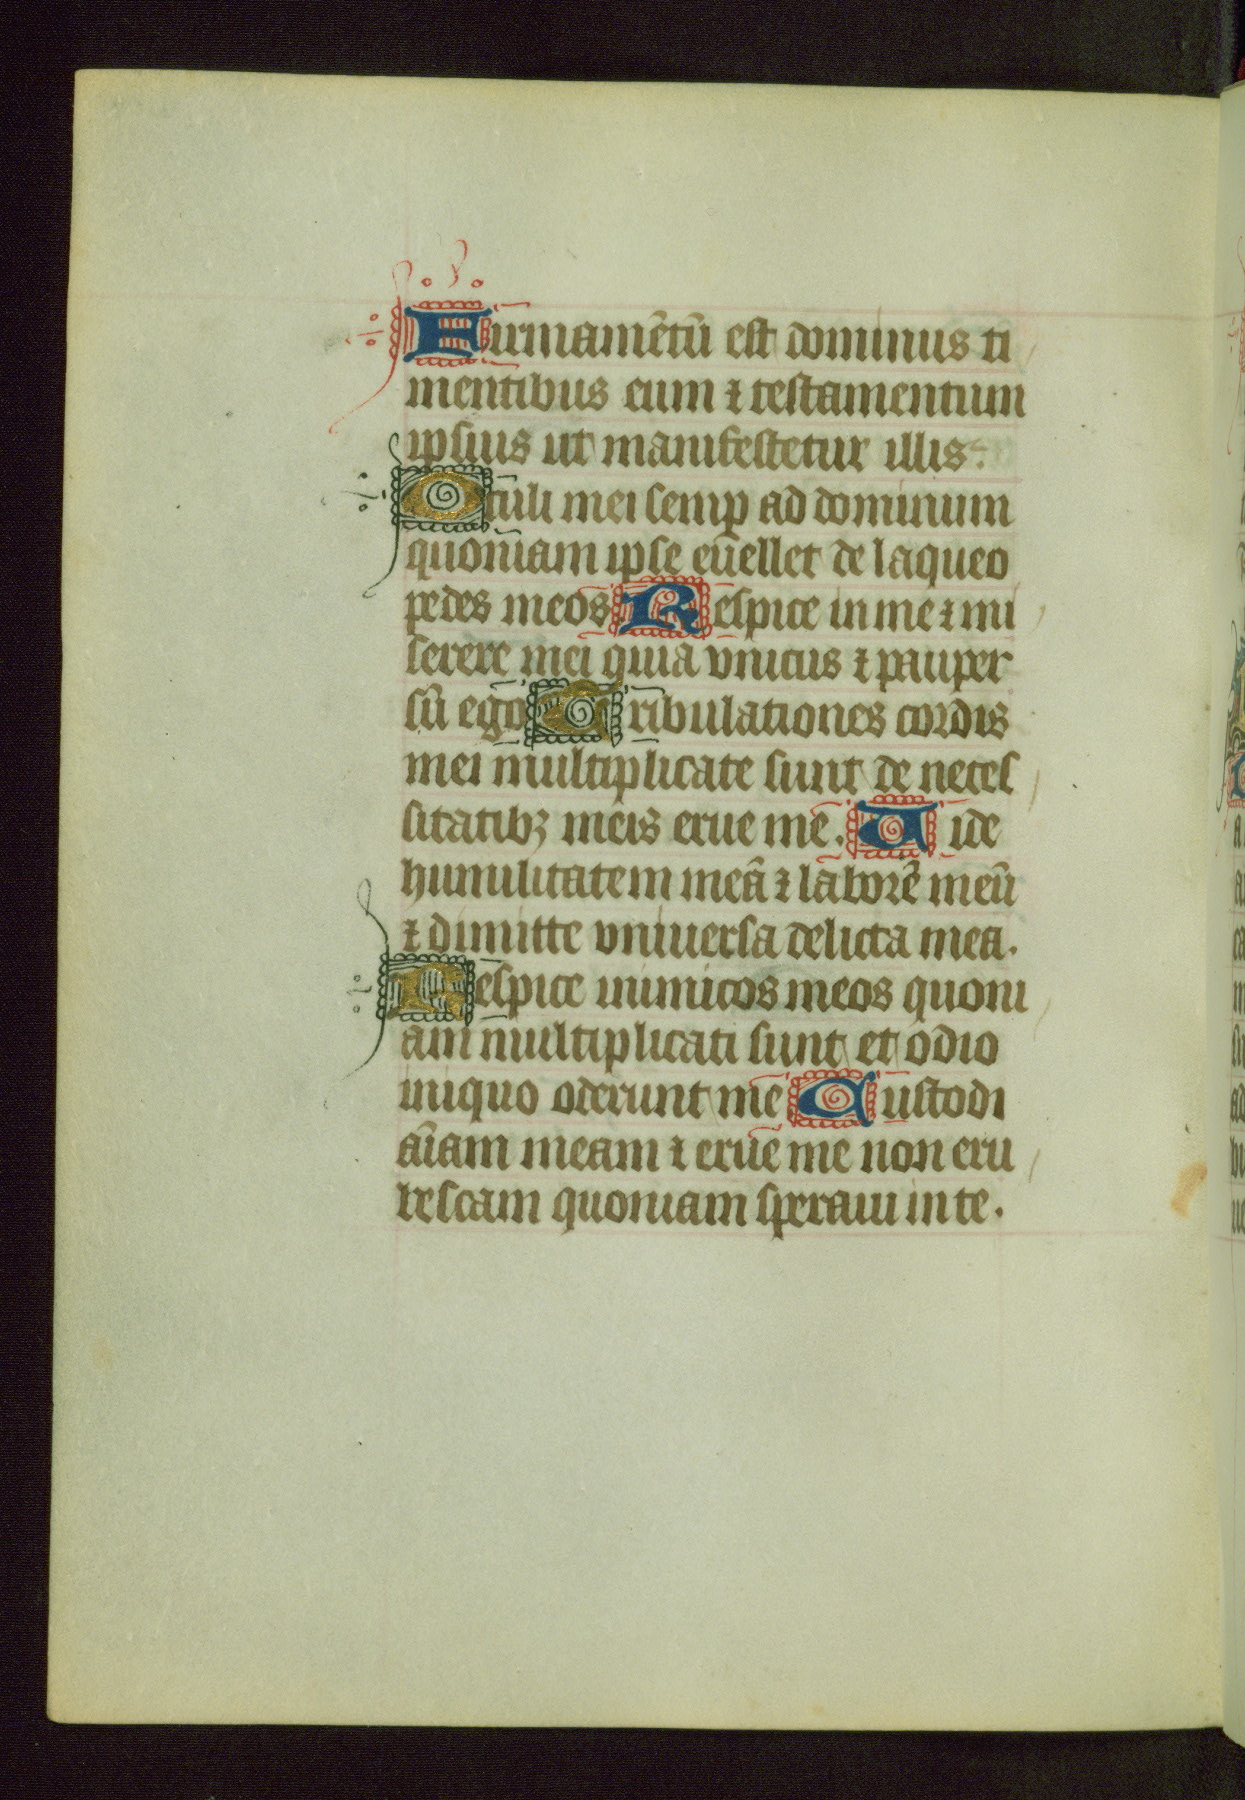 Firmamētū est dominus ti
mentibus eum ⁊ testamentum
ipsius ut manifestetur illis.
Oculi mei semꝑ ad dominum
quoniam ipse euellet de laqueo
pedes meos Respice in me ⁊ mi
serere mei quia vnicus ⁊ pauper
sū ego Tribulationes cordis
mei multiplicate sunt de neces
sitatibꝫ meis erue me. Uide
humilitatem meā ⁊ laborē meū
⁊ dimitte vniuersa delicta mea.
Respice inimicos meos quoni
am multiplicati sunt et odio
iniquo oderunt me Custodi
aīam meam ⁊ erue me non eru
bescam quoniam speraui in te.